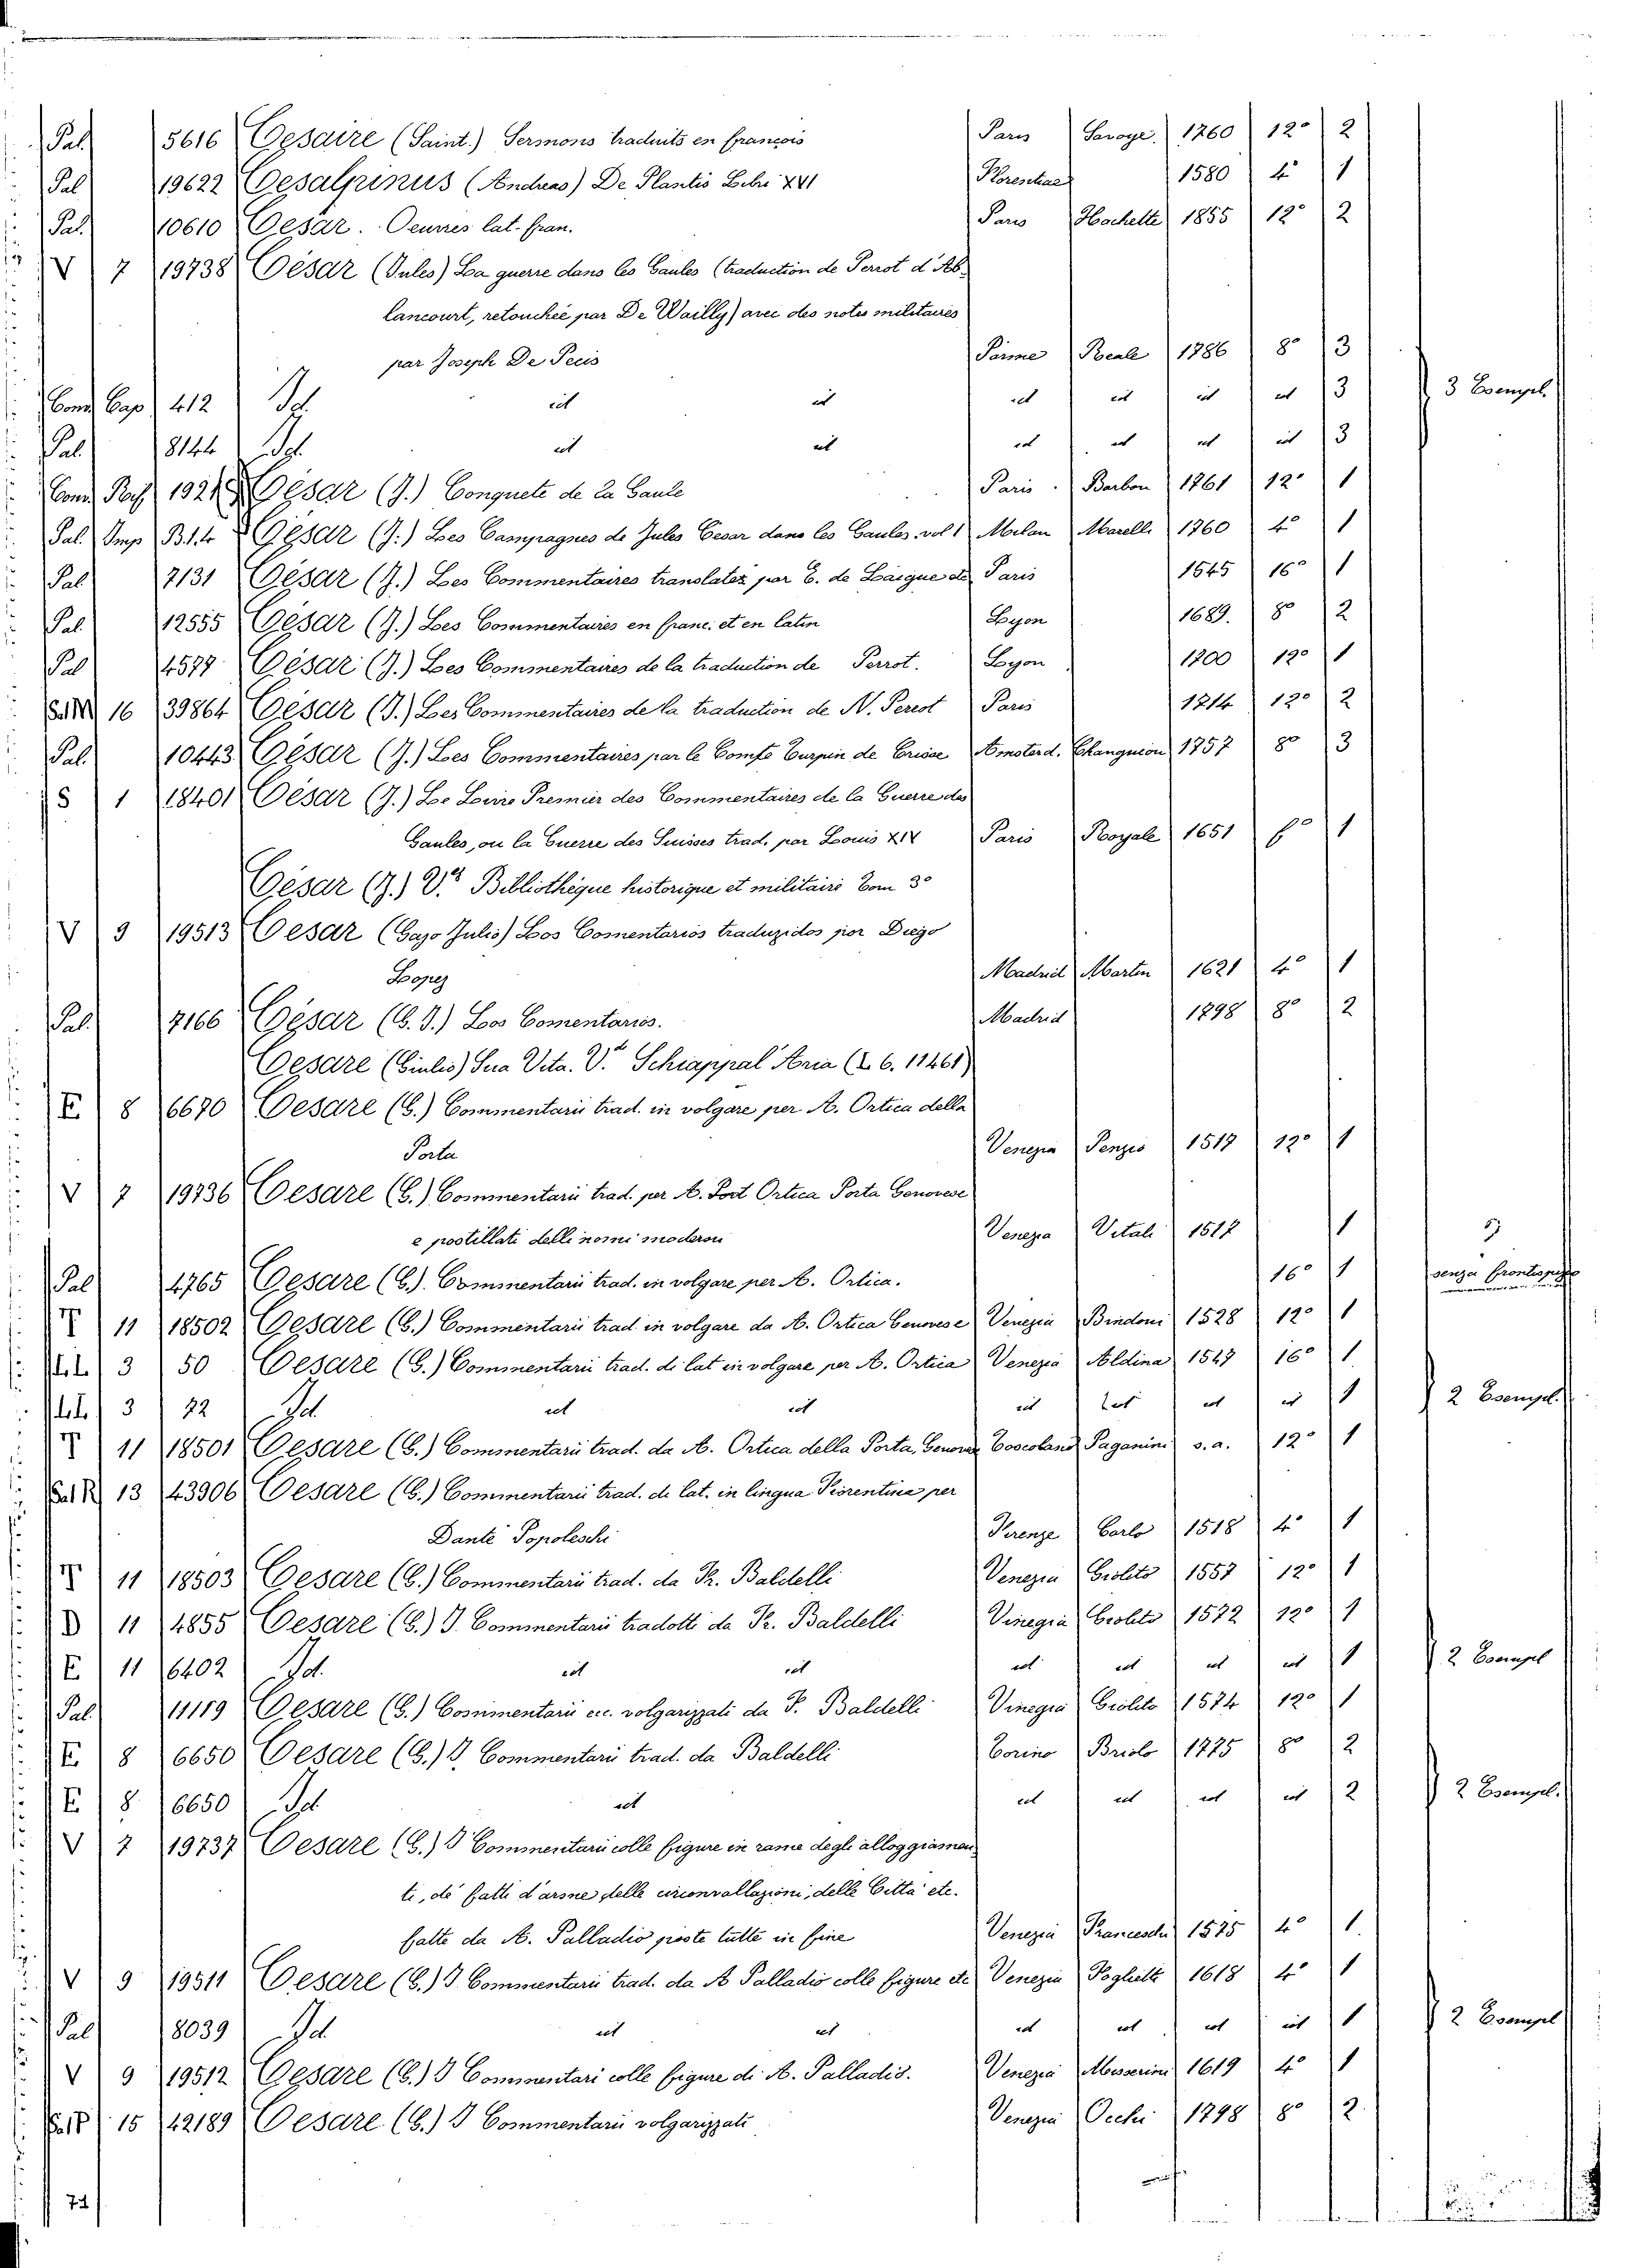 Pal. 5616 Cesaire (Saint.) Sermons traduits en françois Paris Savoye. 1760 12º 2
Pal 19622 Cesalpinus (Andreas) De Plantis Libri XVI Florentiae 1580 4º 1
Pal. 10610 Cesar. Oeuvres lat. fran. Paris Hachette 1855 12º 2
V 7 19738 César (Jules) La guerre dans les Gaules (traduction de Perrot d'Ab-
lancourt, retouchée par De Wailly) avec des notes militaires
par Joseph De Pecis Parme Reale 1786 8º 3
Conv. Cap. 412 Id. id id id id id id 3 3 Esempl.
Pal. 8144 Id. id id id id id id 3
Conv. 1921 César (J.) Conquete de la Gaule Paris Barbon 1761 12º 1
Pal. Imp B.1.4 César (J.) Les Campagnes de Jules Cesar dans les Gaules. vol 1 Milan Marelli 1760 4º 1
Pal 7131 César (J.) Les Commentaires translatez par E. de Laigue etc Paris 1545 16º 1
Pal. 12555 César (J.) Les Commentaires en franc. et en latin Lyon 1689. 8º 2
Pal 4577 César (J.) Les Commentaires de la traduction de Perrot. Lyon 1700 12º 1
16 39864 César (J.) Les Commentaires de la traduction de N. Perrot Paris 1714 12º 2
Pal. 10443 César (J.) Les Commentaires par le Comte Turpin de Crisse Amsterd. Changuion 1757 8º 3
S 1 18401 César (J.) Le Livre Premier des Commentaires de la Guerre des
Gaules, ou la Guerre des Suisses trad. par Louis XIV Paris Royale 1651 fº 1
César (J.) V.d Bibliothèque historique et militaire Tom 3º
V 9 19513 Cesar (Gajo Julio) Los Comentarios traduzidos por Diego
Lopez Madrid Martin 1621 4º 1
Pal. 7166 César (C. J.) Los Comentarios. Madrid 1798 8º 2
Cesare (Giulio) Sua Vita. V.d Schiappal'Aria (L. 6. 11461)
E 8 6670 Cesare (G.) Commentarii trad. in volgare per A. Ortica della
Porta Venezia Penzio 1517 12º 1
V 7 19736 Cesare (G.) Commentarii trad. per A. Port Ortica Porta Genovese
e postillati delli nomi moderni Venezia Vitali 1517 1
Pal 4765 Cesare (G.). Commentarii trad. in volgare per A. Ortica. 16º 1 senza frontispizio
T 11 18502 Cesare (G.) Commentarii trad in volgare da A. Ortica Genovese Venezia Bindoni 1528 12º 1
3 50 Cesare (G.) Commentarii trad. di lat in volgare per A. Ortica Venezia Aldina 1547 16º 1
3 72 Id. id id id id id id 1 2 Esempl.
T 11 18501 Cesare (G.) Commentarii trad. da A. Ortica della Porta, Genovese Toscolano Paganini s. a. 12º 1
Pal R 13 43906 Cesare (G.) Commentarii trad. di lat. in lingua Fiorentina per
Dante Popoleschi Firenze Carlo 1518 4º 1
T 11 18503 Cesare (G.) Commentarii trad. da Fr. Baldelli Venezia Giolito 1557 12º 1
D 11 4855 Cesare (G.) I. Commentarii tradotti da Fr. Baldelli Vinegia Giolito 1572 12º 1
E 11 6402 Id. id id id id id id 1 2 Esempl
Pal. 11119 Cesare (G.) Commentarii ecc. volgarizzati da F. Baldelli Vinegia Giolito 1574 12º 1
E 8 6650 Cesare (G.) I. Commentarii trad. da Baldelli Torino Briolo 1775 8º 2
E 8 6650 Id id id id id id 2 2 Esempl.
V 7 19737 Cesare (G.) I Commentarii colle figure in rame degli alloggiamen-
ti, de' fatti d'arme, delle circonvallazioni, delle Città etc.
fatte da A. Palladio poste tutte in fine Venezia Franceschi 1575 4º 1.
V 9 19511 Cesare (G.) I. Commentarii trad. da A Palladio colle figure etc Venezia Foglietti 1618 4º 1
Pal 8039 Id. id id id id id id 1 2 Esempl
V 9 19512 Cesare (G.) I Commentari colle figure di A. Palladio. Venezia Misserini 1619 4º 1
15 42189 Cesare (G.) I Commentarii volgarizzati Venezia Occhi 1798 8º 2
74